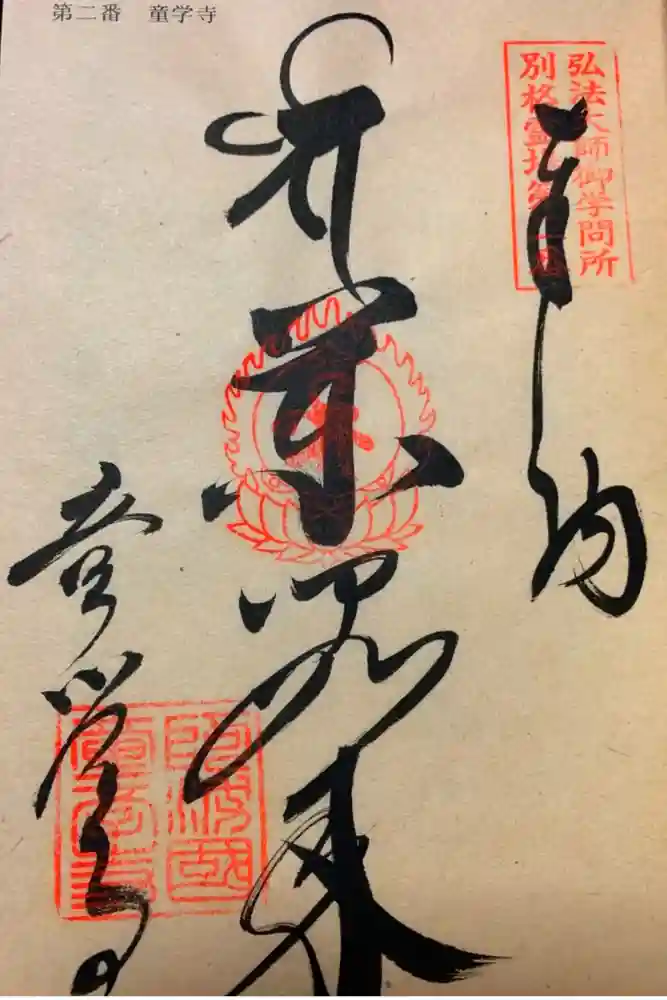 第二番　童学寺
弘法大師御学問所
別格霊場第二番
奉納
薬師如来
童学寺